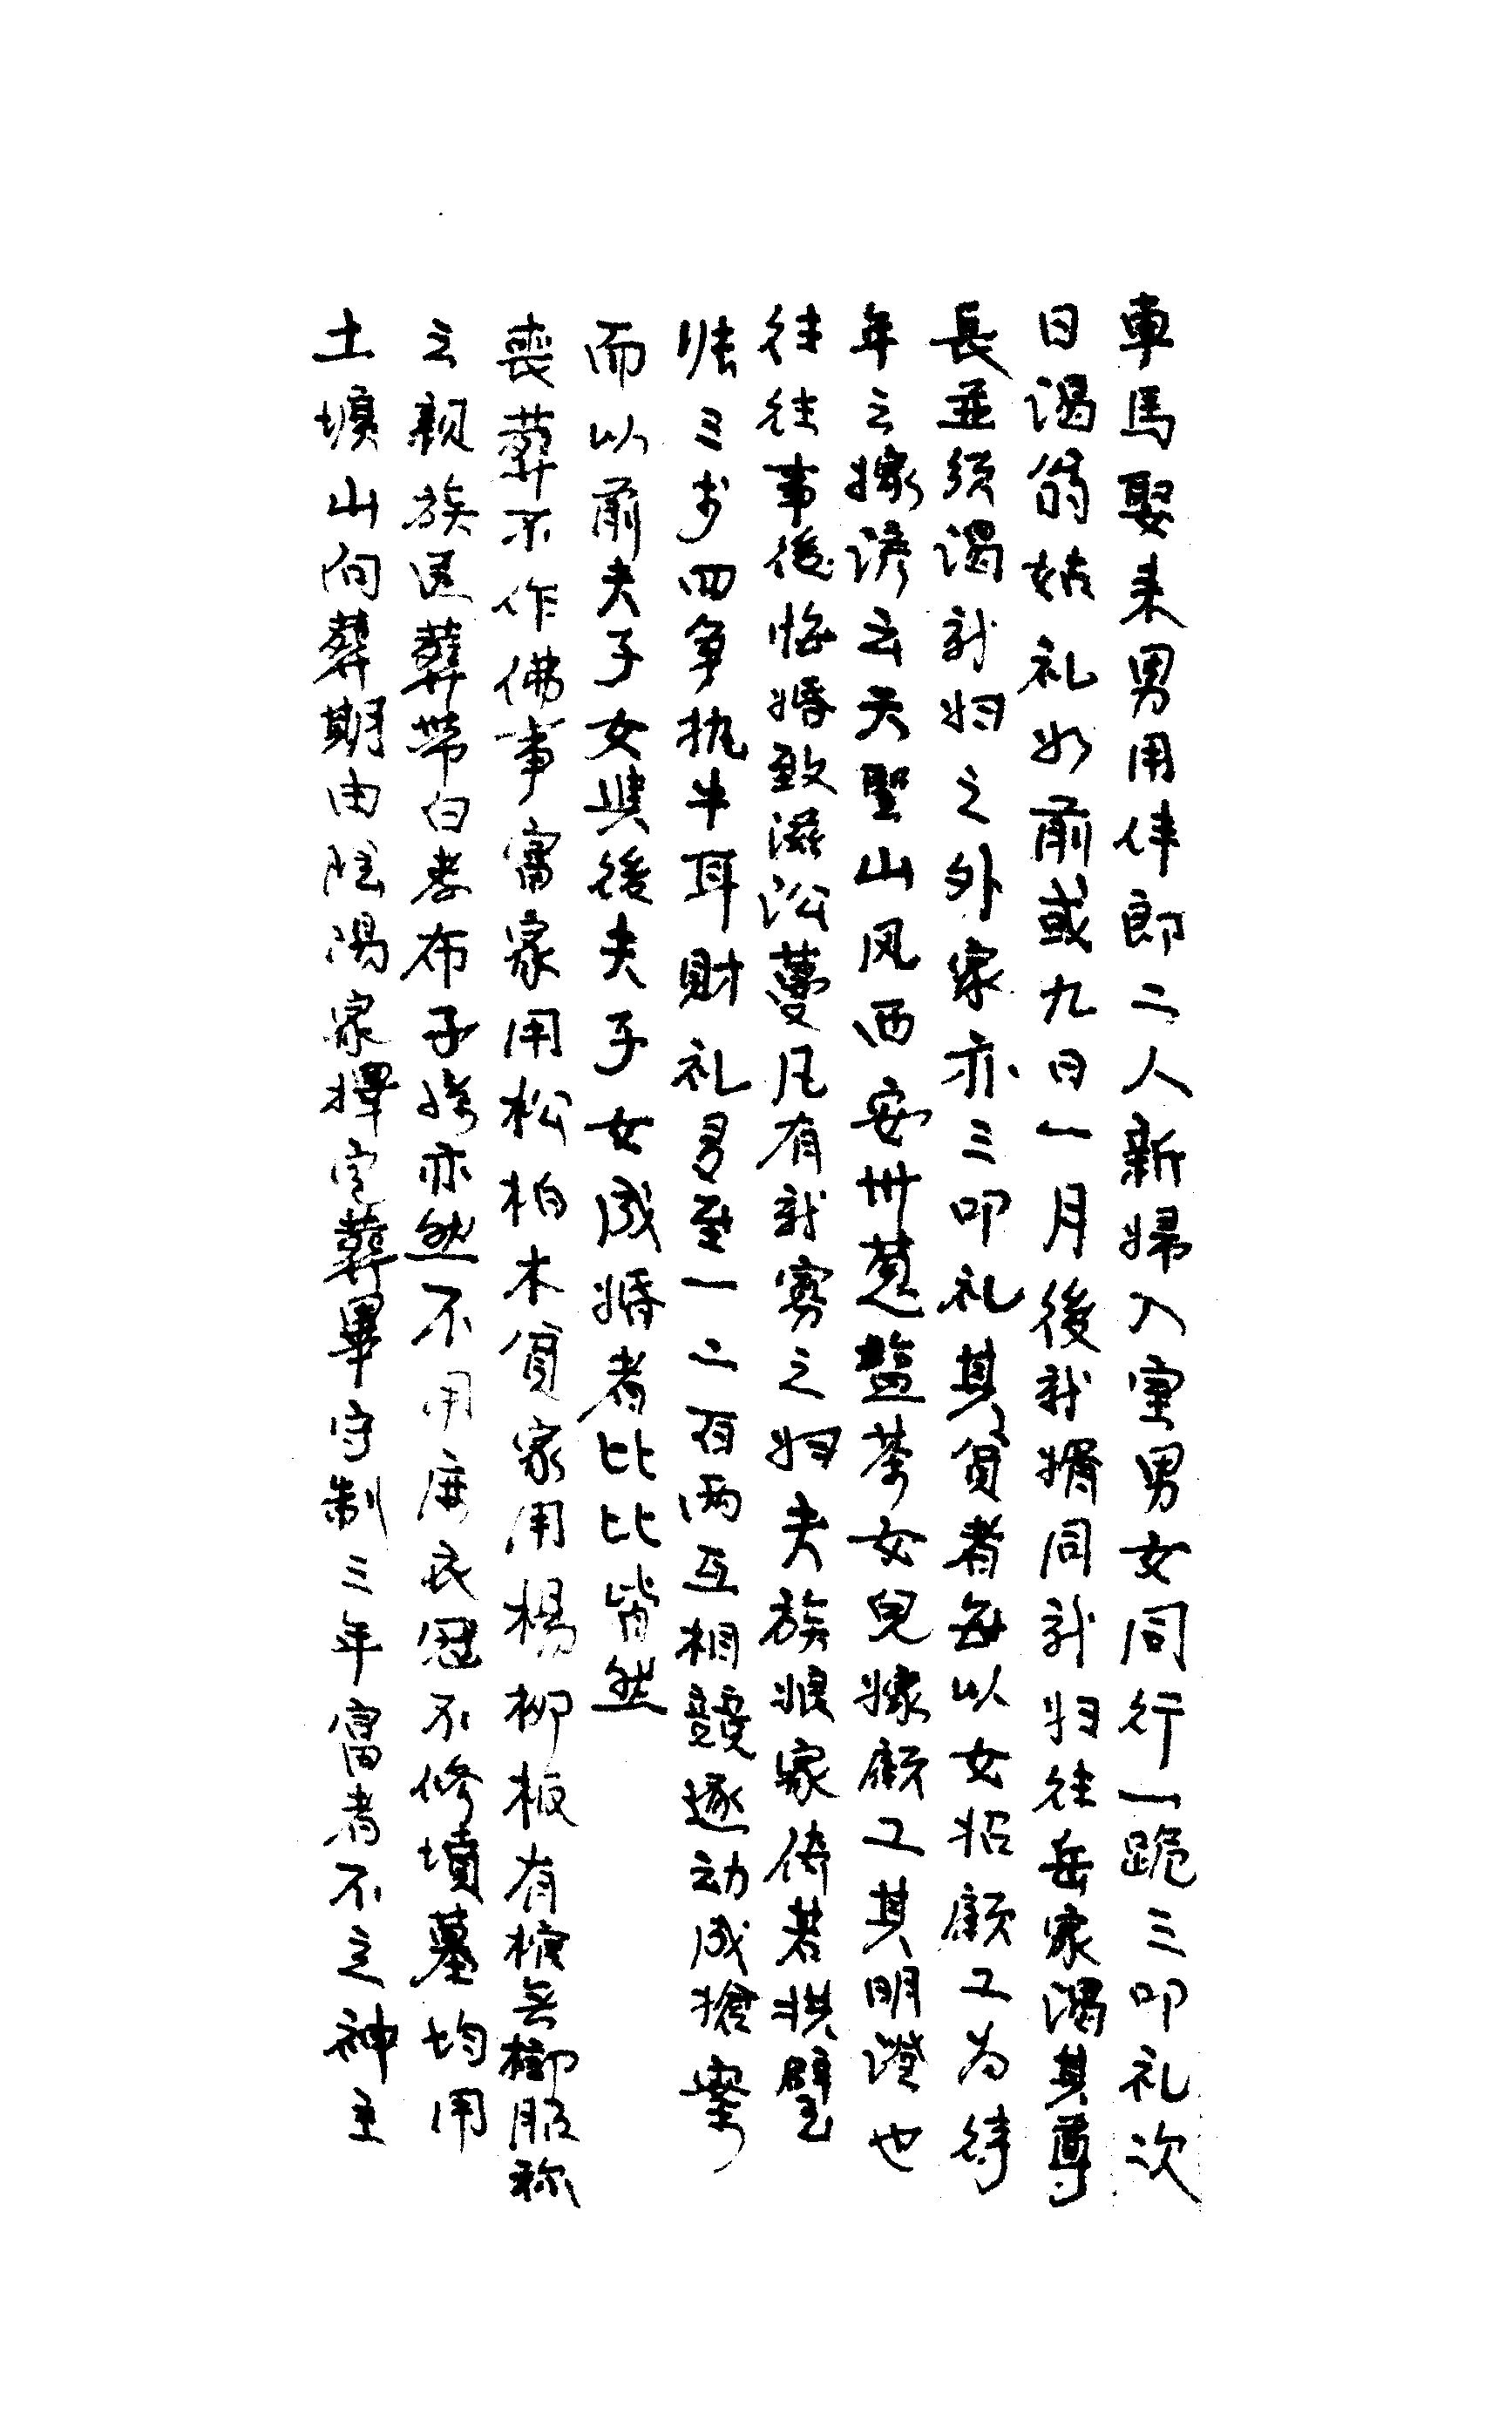 車馬娶来男用伴郎二人新婦入室男女同行一跪三叩礼次
日謁翁姑礼如前或九日一月後新婿同新妇往岳家謁其尊
長並須謁新妇之外家亦三叩礼其貧者每以女招顧工为待
年之嫁諺云天聖山风西安州葱盐茶女兒嫁顧工其明證也
往往事後悔婚致滋訟蔓凡有新寡之妇夫族娘家倚若拱璧
张三李四争执牛耳財礼身至一二百两互相競逐动成搶案
而以前夫子女與後夫子女成婚者比比皆然
喪葬不作佛事富家用松柏木貧家用楊柳板有棺無槨服称
之親族送葬带白孝布子孫亦然不用麻衣冠不修墳墓均用
土壙山向葬期由陰陽家擇定葬畢守制三年富者不立神主